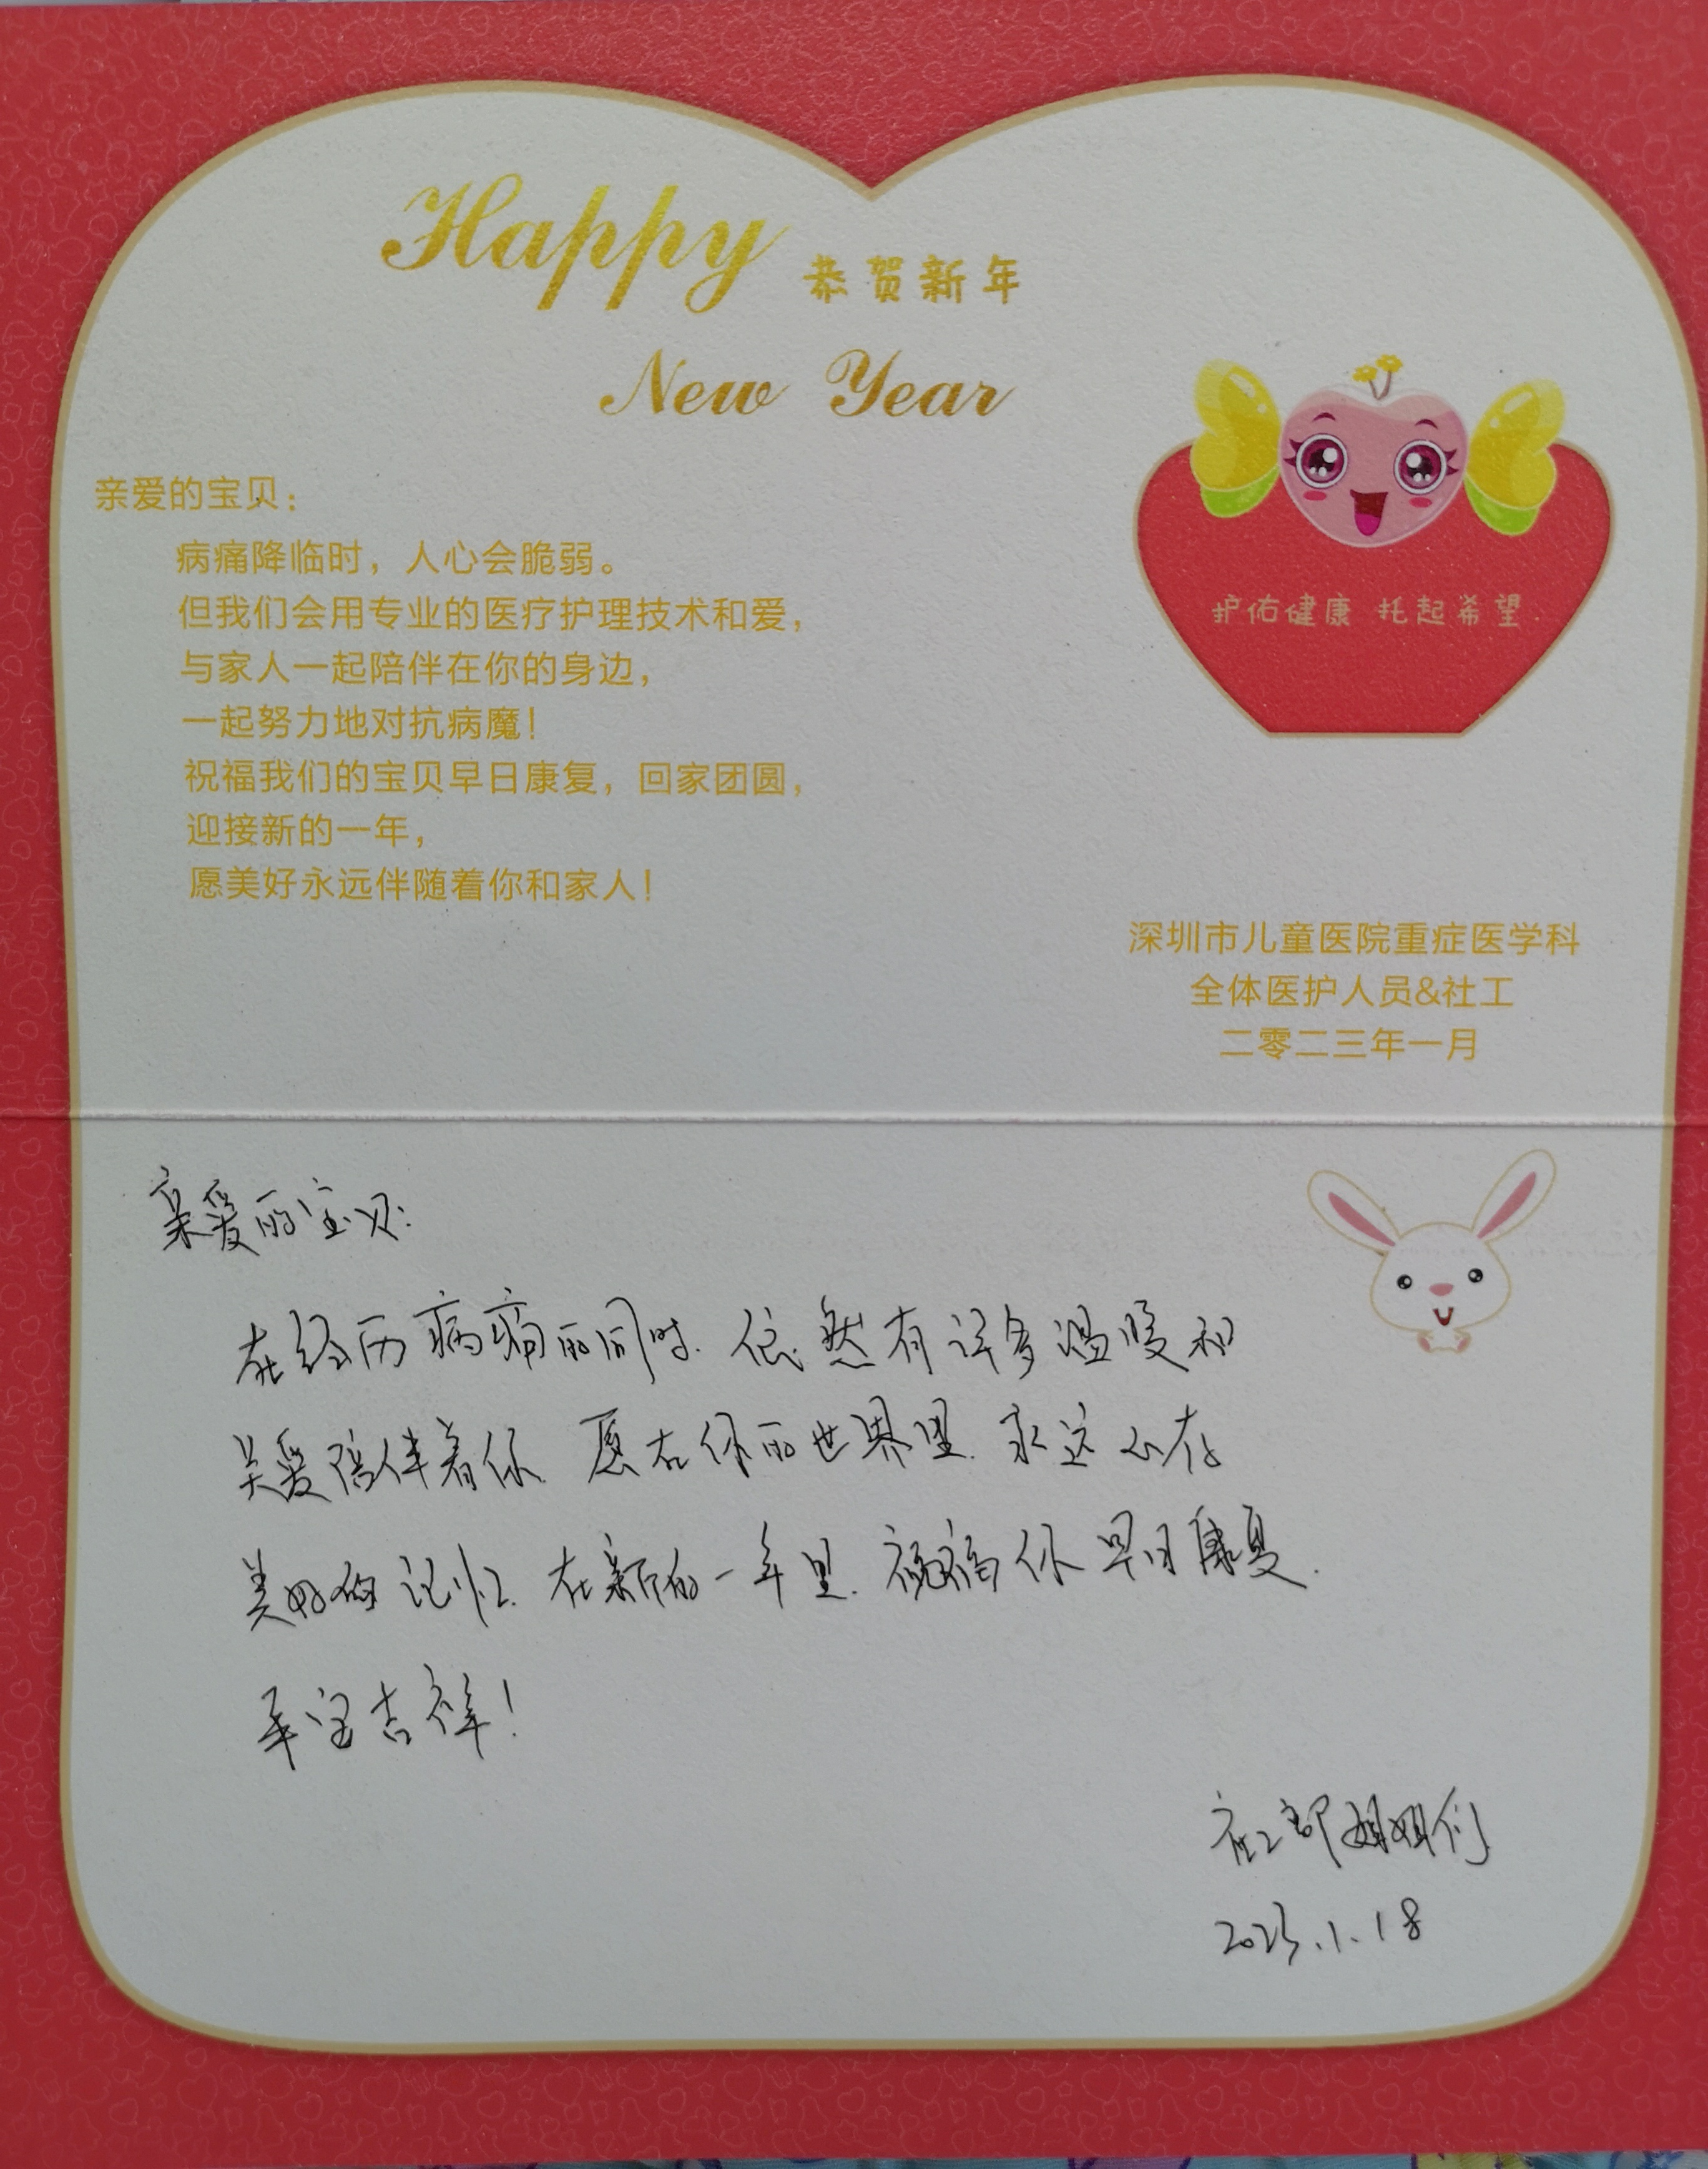 Happy 恭贺新年
New Year
亲爱的宝贝：
病痛降临时，人心会脆弱。
但我们会用专业的医疗护理技术和爱，
与家人一起陪伴在你的身边，
一起努力地对抗病魔！
祝福我们的宝贝早日康复，回家团圆，
迎接新的一年，
愿美好永远伴随着你和家人！
护佑健康 托起希望
深圳市儿童医院重症医学科
全体医护人员&社工
二零二三年一月
亲爱的宝贝:
在经历病痛的同时. 依然有许多温暖和
关爱陪伴着你. 愿在你的世界里. 永远心存
美好的记忆. 在新的一年里. 祝福你早日康复.
平安吉祥!
社工部姐姐们
2023.1.18